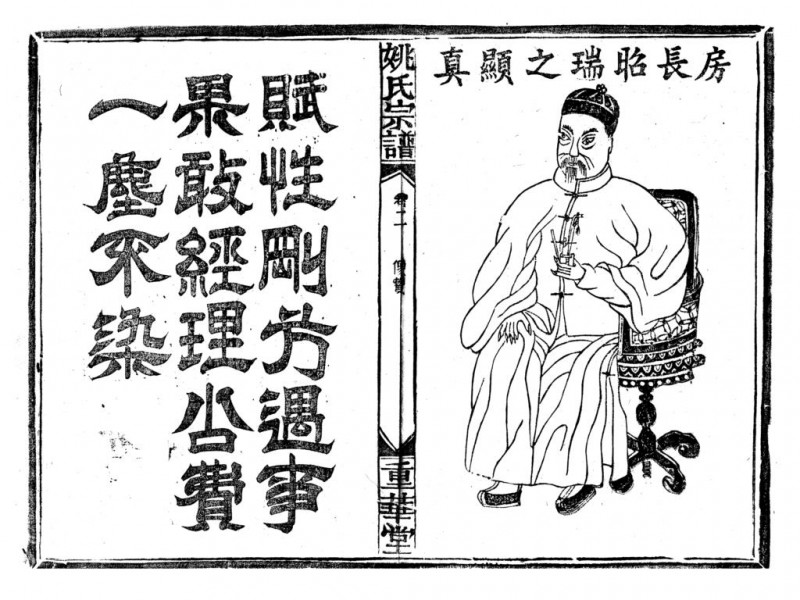 房長昭瑞之顯真
姚氏宗譜
卷二
傳贊
重華堂
賦性剛方遇事
果敢經理公費
一塵不染